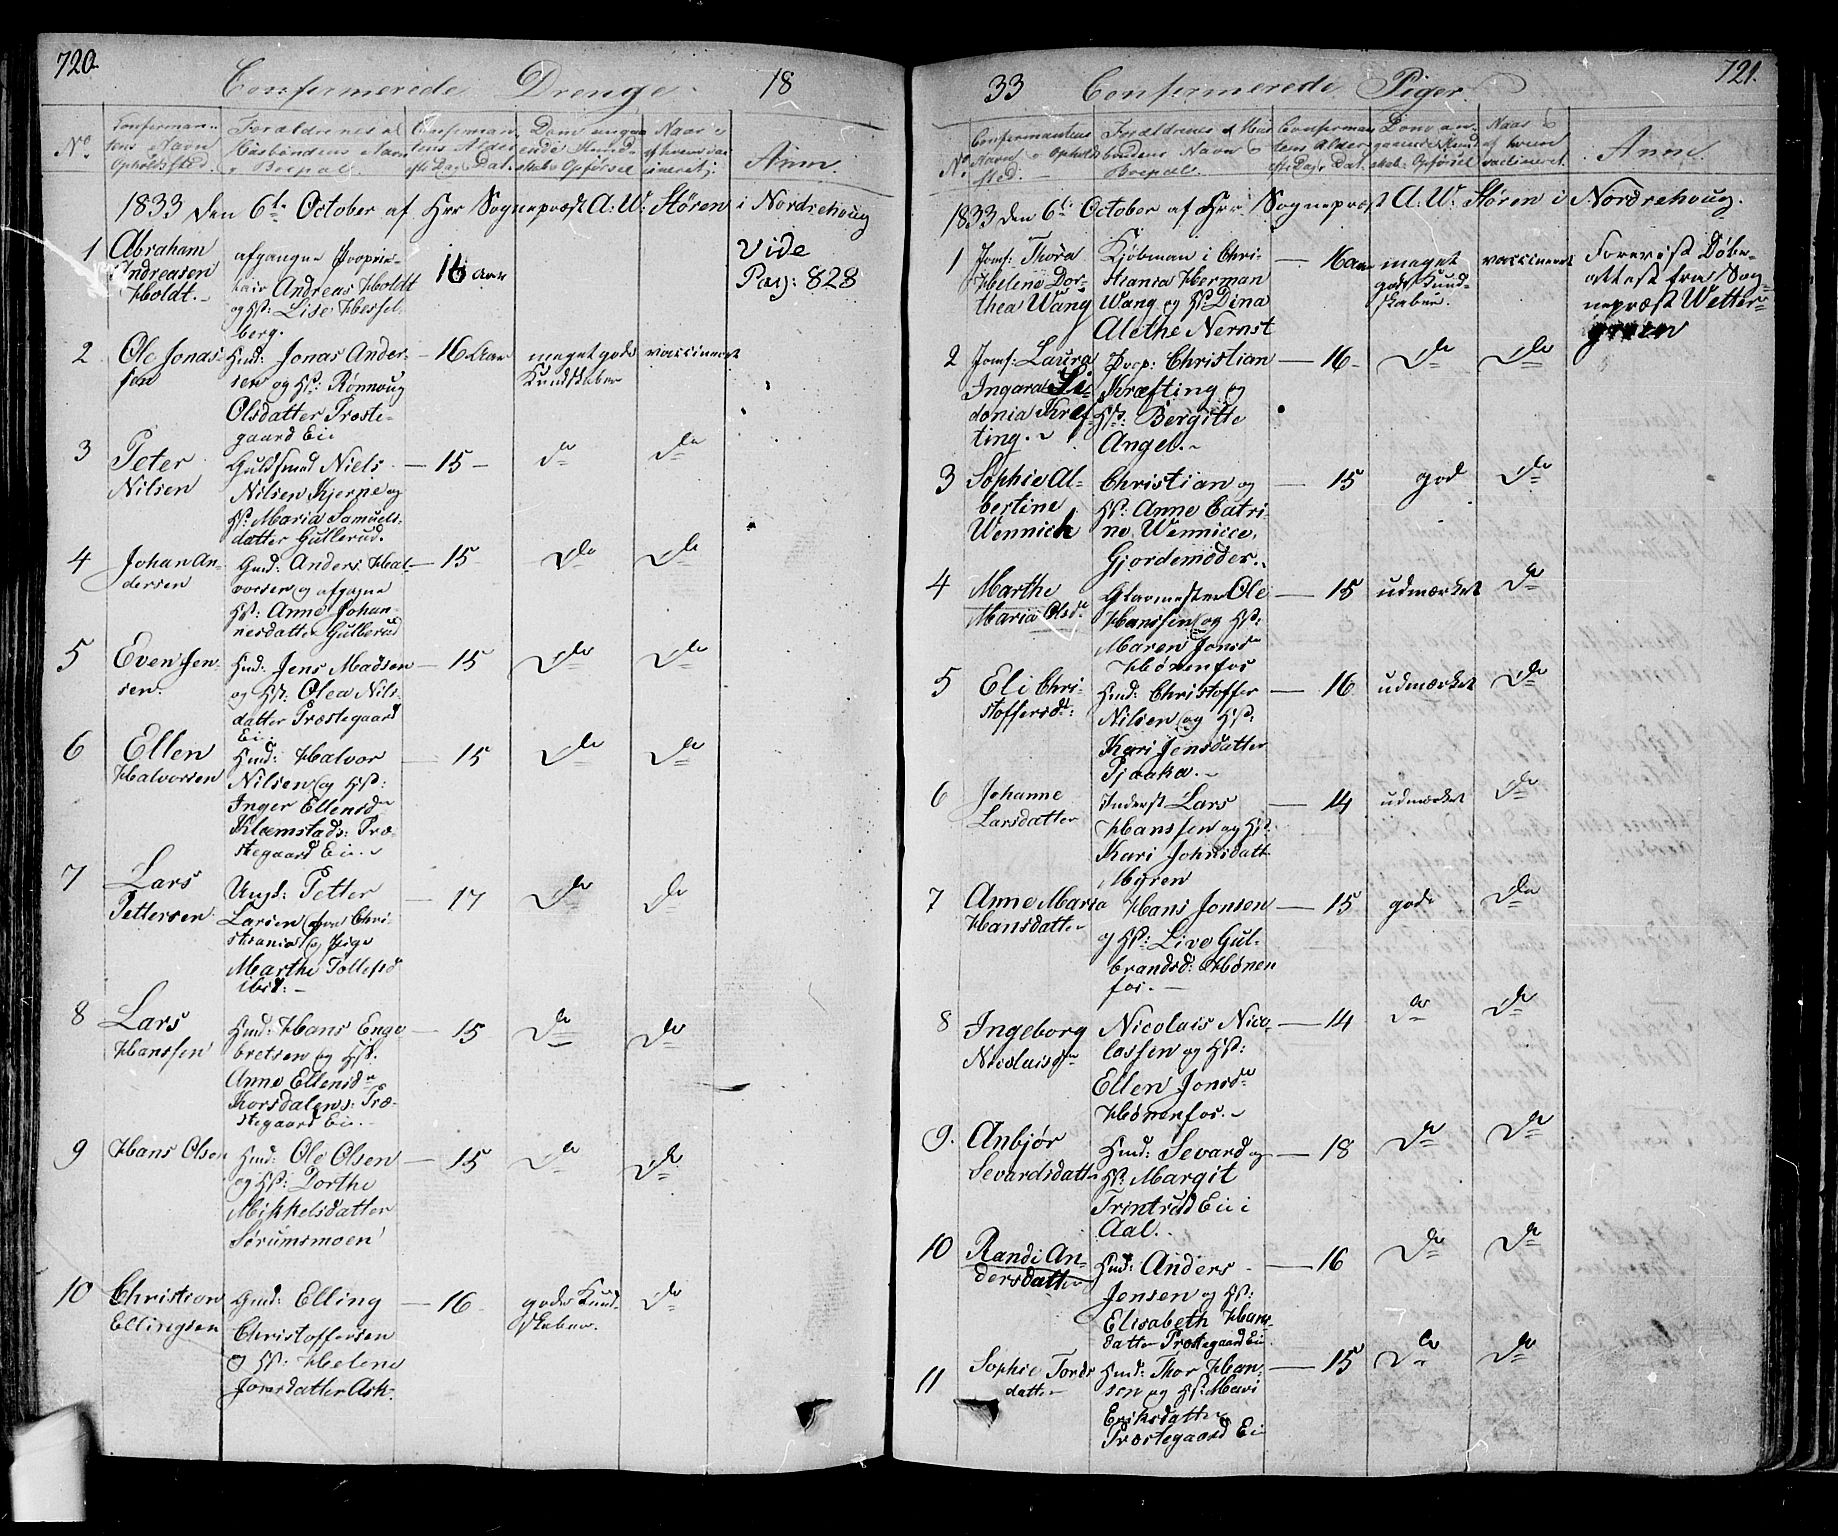 720.
Confermerede Drenge. 18
No
Conferman-
tens Navn
Opholdssted.
Forældrenes el
Huusbondens Navn
Boepæl.
Conferman
tens Alder
efter Dags Dat.
Dom angaa
ende Kund-
skab Opførsel
Naar
af hvem vac
cineret
Anm.
1833 den 6te October af Hrr Sognepræst A: W: Støren i Nordrehoug
1
Abraham
Andreasen
Holdt.
afgangne Proprie-
tair Andreas Holdt
og Hst: Lise Hessel
berg.
16 Aar
Vide
Pag: 828
2
Ole Jonas-
sen
Hmd: Jonas Ander-
sen og Hst: Rønnoug
Olsdatter Præste-
gaard Eie
16 Aar
meget gode
Kundskaber
vaccineret
3
Peter
Nilsen
Guldsmed Niels
Nilsen Kjerne og
Hst: Maria Samuels-
datter Gullerud.
15
do
do
4
Johan An-
dersen
Gmd: Anders Hal-
vorsen og afgagne
Hst: Anne Johan-
nesdatter Gullerud
15
do
do
5
Even Jen-
sen.
Hmd: Jens Madsen
og Hst: Olea Nils-
datter Præstegaard
Ei:
15
do
do
6
Ellen
Halvorsen
Hmd: Halvor
Nilsen og Hst:
Inger Ellensdr
Klemstads: Præ-
stegaard Eie.
15
do
do
7
Lars
Pettersen
Ungk: Petter
Larsen fra Chri-
stiania og Pige
Marthe Tollefsd
ibid:
17
do
do
8
Lars
Hanssen
Hmd: Hans Enge
bretsen og Hst.
Anne Ellensdr
Korsdalens: Præ-
stegaard Eie.
15
do
do
9
Hans Olsen
Hmd: Ole Olsen
og Hst: Dorthe
Mikkelsdatter
Sørumsmoen
15
do
do
10
Christian
Ellingsen
Gmd: Elling
Christoffersen
og Hst: Helene
Joersdatter Ask.
16
gode Kund-
skaber.
do
33 Confermerede Piger.
721.
No
Confermantens
Navn Opholds
sted.
Forældrenes el Huus
bondens Navn
Boepæl
Conferman
tens Alder
efter Dags Dat.
Dom an-
gaaende Kund
skab: Opførsel
Naar
af hvem
vaccineret.
Anm.
1833 den 6te October af Hrr Sognepræst A: W: Støren i Nordrehoug.
1
Jomf: Thora
Helene Dor-
thea Wang
Kjøbman i Chri-
stiania Herman
Wang og Hst: Dina
Alethe Nernst
16 aar
meget
gode Kund-
skaber.
vaccineret
Foreviist Døbe-
attest fra Sog-
nepræst Wetter-
green
2
Jomf: Laura
Ingara Si-
donia Kref
ting.
Prop: Christian
Kræfting og
Hst: Bergitte
Angel.
16
do
do
3
Sophie Al-
bertine
Wennich
Christian og
Hst: Anne Catri-
ne Wennicce.
Gjordemoder.
15
god
do
4
Marthe
Maria Olsdr
Glarmester Ole
Hanssen og Hst:
Maren Jonsdr
Hønenfos
15
udmærket
do
5
Eli Chri-
stoffersdr:
Hmd: Christoffer
Nilsen og Hst:
Kari Jensdatter
Tjaaka.
16
udmærket
do
6
Johanne
Larsdatter
Inderst Lars
Hanssen og Hst:
Kari Johnsdatt
Myren
14
udmærket
do
7
Anne Maria
Hansdatter
Hans Jonsen
og Hst: Live Gul-
brandsd: Hønen
fos.
15
gode
do
8
Ingeborg
Nicolaisdr
Nicolais Nico-
lassen og Hst:
Ellen Jonsdr
Hønenfos.
14
do
do
9.
Anbjør
Sevardsdatter
Hmd: Sevard og
Hst: Margit
Trintrud Eie i
Aal.
18
do
do
10
Randi An-
dersdatter
Hmd: Anders
Jensen og Hst:
Elisabeth Hans-
datter Præstegaard Eie
16
do
do
11
Sophie Tords
datter
Hmd: Thor Han-
sen og Hst: Mari
Eriksdatter
Præstegaard Ei
15
do
do